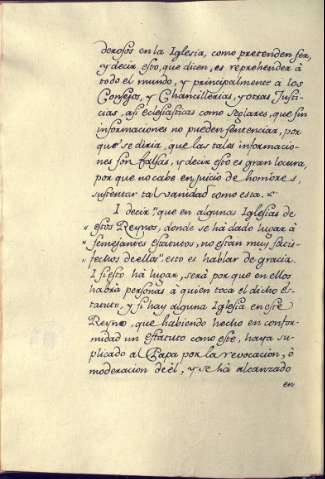 derosos en la Iglesia, como pretenden sér,
y decir esto, que dicen, es reprehender à
todo el mundo, y principalmente à los
Consejos, y Chancillerias, y otras Justi-
cias, asi eclesiasticas como seglares, que sin
informaciones no pueden sentenciar, por
que se diria, que las tales informacio-
nes són falsas, y decir esto es gran locura,
por que no cabe en juicio de hombres,
sustentar tal vanidad como esta.
I decir: "que en algunas Iglesias de
"estos Reynos, donde se há dado lugar à
"semejantes Estatutos, no estan muy satis-
"fechos de ellos": esto es hablar de gracia.
I si esto há lugar, será por que en ellos
habrà personas à quien toca el dicho Es-
tatuto, y si hay alguna Iglesia en este
Reyno, que habiendo hecho en confor-
midad un estatuto como este, haya su-
plicado al Papa por la revocacion, ò
moderacion de èl, y se há alcanzado
en